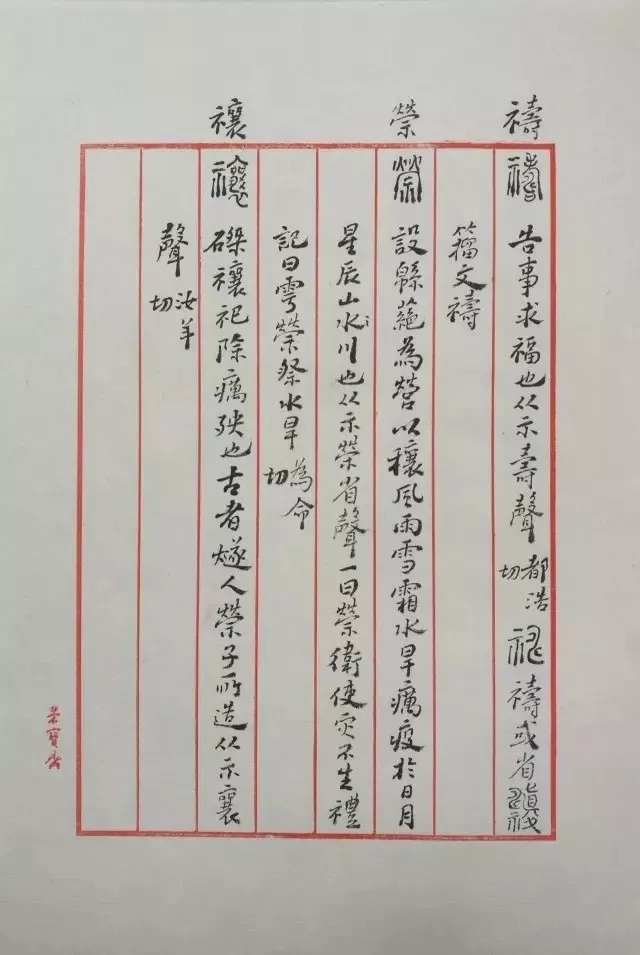 禱
禱 告事求福也从示壽聲 都浩切 禱或省
籀文禱
禜
禜 設緜蕝為營以穰風雨雪霜水旱癘疫於日月
星辰山水川也从示榮省聲一曰禜衛使灾不生禮
記曰雩禜祭水旱 為命切
禳
禳 磔禳祀除癘殃也古者燧人禜子所造从示襄
聲 汝羊切
荣寶齋